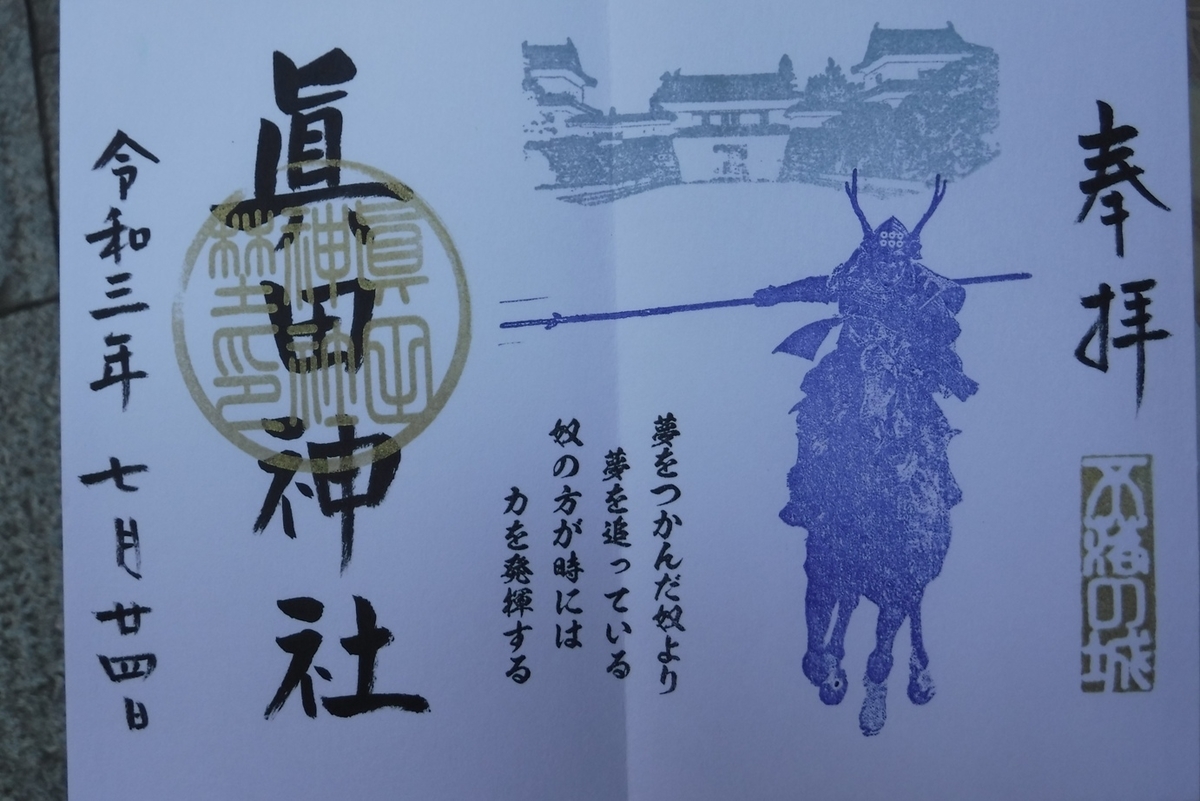 奉拝
不落の城
夢をつかんだ奴より
夢を追っている
奴の方が時には
力を発揮する
眞田神社
眞田神社璽印
令和三年七月廿四日